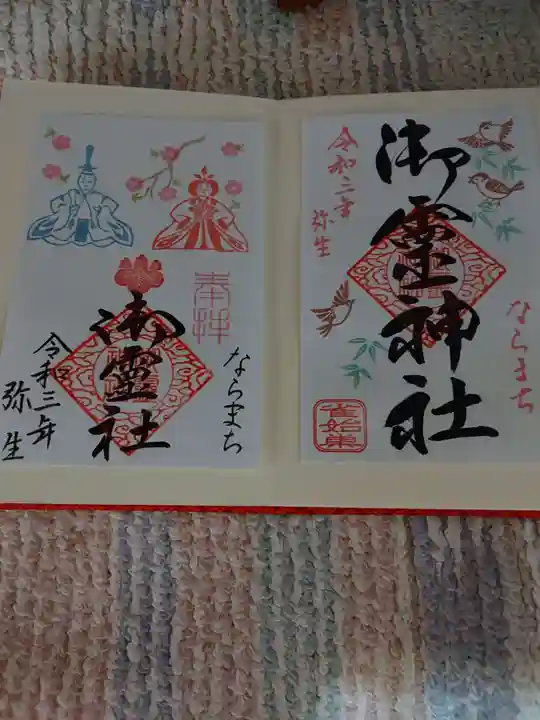 御靈神社
令和三年
弥生
ならまち
雀始巣
奉拝
ならまち
御靈社
令和三年
弥生